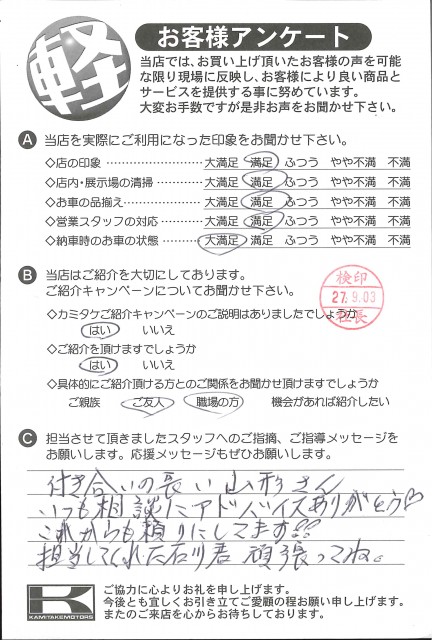 軽
お客様アンケート
当店では、お買い上げ頂いたお客様の声を可能
な限り現場に反映し、お客様により良い商品と
サービスを提供する事に努めています。
大変お手数ですが是非お声をお聞かせ下さい。
A 当店を実際にご利用になった印象をお聞かせ下さい。
◇店の印象 ………………… 大満足 満足 ふつう やや不満 不満
◇店内・展示場の清掃………… 大満足 満足 ふつう やや不満 不満
◇お車の品揃え……………… 大満足 満足 ふつう やや不満 不満
◇営業スタッフの対応 ……… 大満足 満足 ふつう やや不満 不満
◇納車時のお車の状態 ……… 大満足 満足 ふつう やや不満 不満
B 当店はご紹介を大切にしております。
ご紹介キャンペーンについてお聞かせ下さい。
検印
27.9.03
社長
◇カミタケご紹介キャンペーンのご説明はありましたでしょうか
はい いいえ
◇ご紹介を頂けますでしょうか
はい いいえ
◇具体的にご紹介頂ける方とのご関係をお聞かせ頂けますでしょうか
ご親族 ご友人 職場の方 機会があれば紹介したい
C 担当させて頂きましたスタッフへのご指摘、ご指導メッセージを
お願いします。応援メッセージもぜひお願いします。
付き合いの長い山形さん
いつも相談にアドバイスありがとう♡
これからも頼りにしてます!!
担当してくれた石川君 頑張ってね。
K
KAMITAKEMOTORS
ご協力に心よりお礼を申し上げます。
今後とも宜しくお引き立てご愛顧の程お願い申し上げます。
またのご来店を心からお待ちしております。